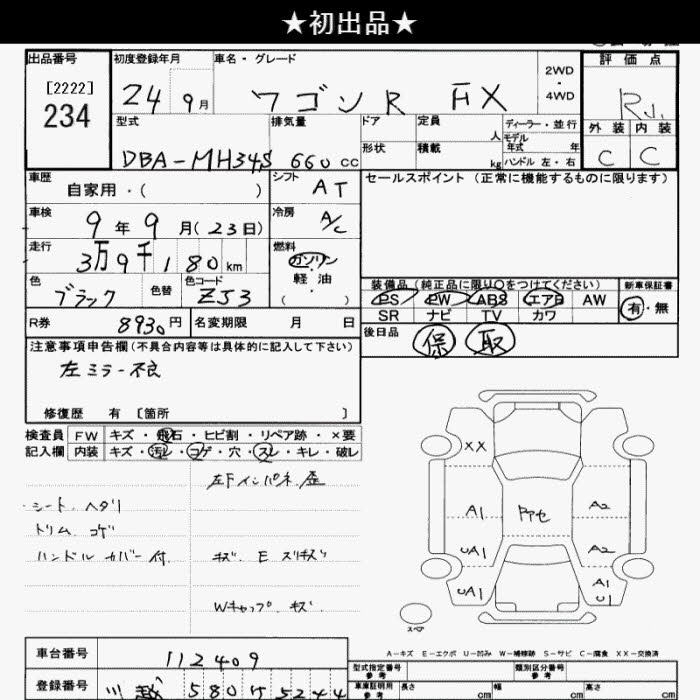 ★初出品★
出品番号 初度登録年月 車名・グレード 2WD・4WD 評価点
[2222]
234 24 9月 ワゴンR FX R1.
型式 排気量 ドア 定員 人 ディーラー・並行 外装 内装
形状 積載 kg モデル年式 年 ハンドル 左・右
DBA-MH34S 660 CC C C
車歴 自家用・( ) シフト AT セールスポイント (正常に機能するものに限ります)
車検 9年9月(23日) 冷房 A/C
走行 3万9千180km 燃料 ガソリン・軽油・( )
色 ブラック 色替 色コード ZJ3 装備品 (純正品に限り○をつけてください) 新車保証書
PS PW ABS エアB AW 有・無
SR ナビ TV カワ
R券 8930円 名変期限 月 日 後日品 保 取
注意事項申告欄(不具合内容等は具体的に記入して下さい)
左ミラー不良
修復歴 有 [箇所 ]
検査員 FW キズ・飛石・ヒビ割・リペア跡・×要
記入欄 内装 キズ・汚レ・コゲ・穴・スレ・キレ・破レ
左Fインパネ
シート ヘタリ
トリム コゲ
ハンドル カバー付 キズ. E スリキズ
Wキャップ キズ.
XX
A1 A2
UA1 A2
UA1 A1
U1
スペア
A-キズ E-エクボ U-凹み W-補修跡 S-サビ C-腐食 XX-交換済
車台番号 112409 型式指定番号 参考 類別区分番号 参考
登録番号 川越 580 5244 車庫証明用 参考 長さ cm 幅 cm 高さ cm